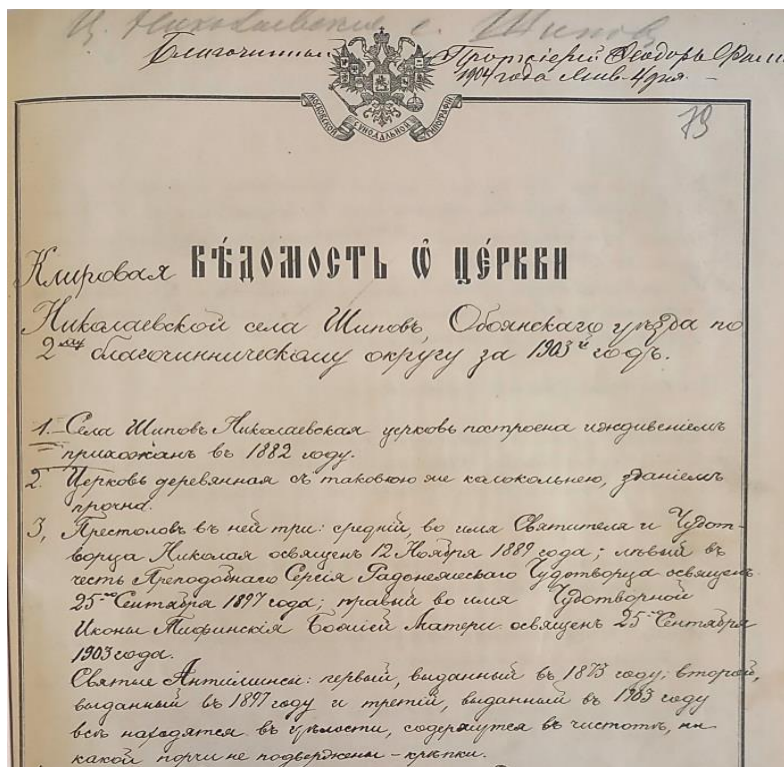 Ц. Николаевская с. Шипов
Благочинный Протоіерей Ѳеодоръ
1904 года Янв. 4 дня. –
МОСКОВСКОЙ СѴНОДАЛЬНОЙ ТИПОГРАФІИ
79
Клировая ВѢ́ДОМОСТЬ Ѡ҆ ЦЕ́РКВИ
Николаевской села Шиповъ Обоянскаго уѣзда по
2му благочинническому округу за 1903й годъ.
1. Села Шиповъ Николаевская церковь построена иждивеніемъ
прихожанъ въ 1882 году.
2. Церковь деревянная съ таковою же колокольнею, зданіемъ
прочна.
3, Престоловъ въ ней три: средній, во имя Святителя и Чудот-
ворца Николая освященъ 12 Ноября 1889 года; лѣвый въ
честь Преподобнаго Сергія Радонежскаго Чудотворца освященъ
25го Сентября 1897 года; правый во имя Чудотворной
Иконы Тифинскія Божіей Матери освященъ 25го Сентября
1903 года.
Святые Антиминсы: первый, выданный въ 1873 году; второй,
выданный въ 1897 году и третій, выданный въ 1903 году
всѣ находятся въ цѣлости, содержутся въ чистотѣ, ни
какой порчи не подвержены – крѣпки.